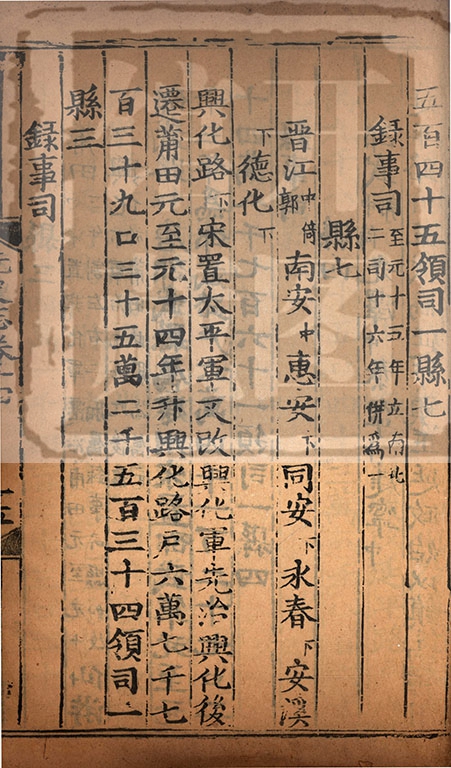 五百四十五領司一縣七
錄事司至元十五年立南北
二司十六年併爲一
縣七
晋江中倚
郭南安中惠安下同安下永春下安溪
下德化下
興化路下宋置太平軍又改興化軍先治興化後
遷莆田元至元十四年升興化路戸六萬七千七
百三十九口三十五萬二千五百三十四領司一
縣三
錄事司